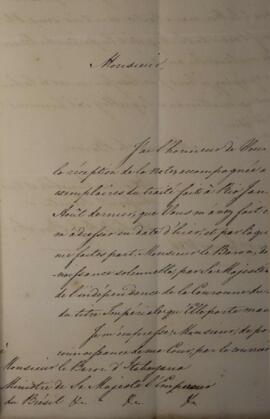 Monsieur,
J'ai l'honneur de Vous
la réception de la Note accompagnée
exemplaires du traité fait à Rio Jan
Août dernier, que Vous m'avez fait
m'adresser en date d'hier, et par laque
me faites part, Monsieur le Baron, de
naissance solennelle, par Sa Majesté
de l'indépendance de la Couronne du
du titre Impérial que
Je m'empresse, Monsieur, de po
connaissance de ma Cour, par le courrier
à
Monsieur le Baron d'Itabayana
Ministre de Sa Majesté l'Empereur
du Brésil &c &c &c